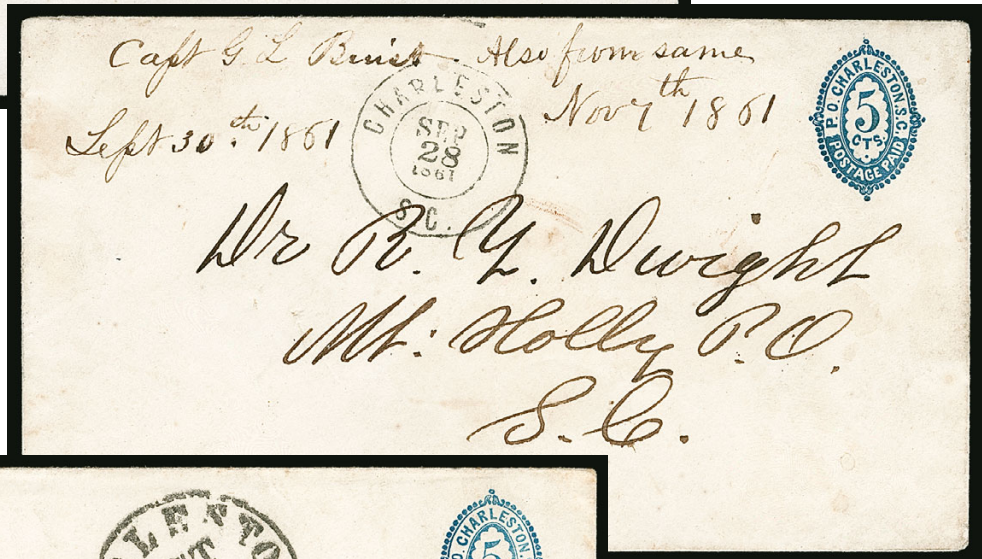 Capt G L Buist Also from same
Sept 30.th 1861
Nov 7th 1861
CHARLESTON
SEP
28
1861
S.C.
P.O. CHARLESTON. S.C.
5
CTS.
POSTAGE PAID
Dr R. Y. Dwight
Mt: Holly P.O.
S.C.
LESTO
O. CHARLESTON.
5